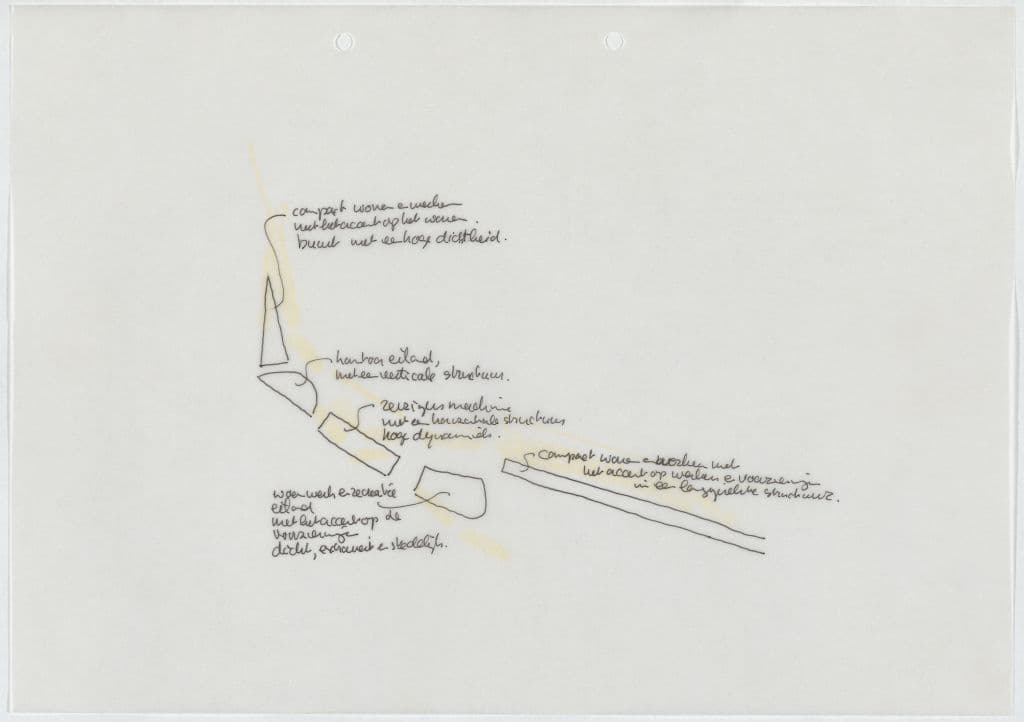 compact wonen en werken
met het accent op het wonen.
buurt met een hoge dichtheid.
kantoor eiland,
met een verticale structuur.
machine
met een horizontale structuur
hoge dynamiek.
compact wonen en werken met
het accent op werken en voorzieningen
in een langgerekte structuur.
woon werk en recreatie
eiland
met het accent op de
voorzieningen
dicht, en stedelijk.